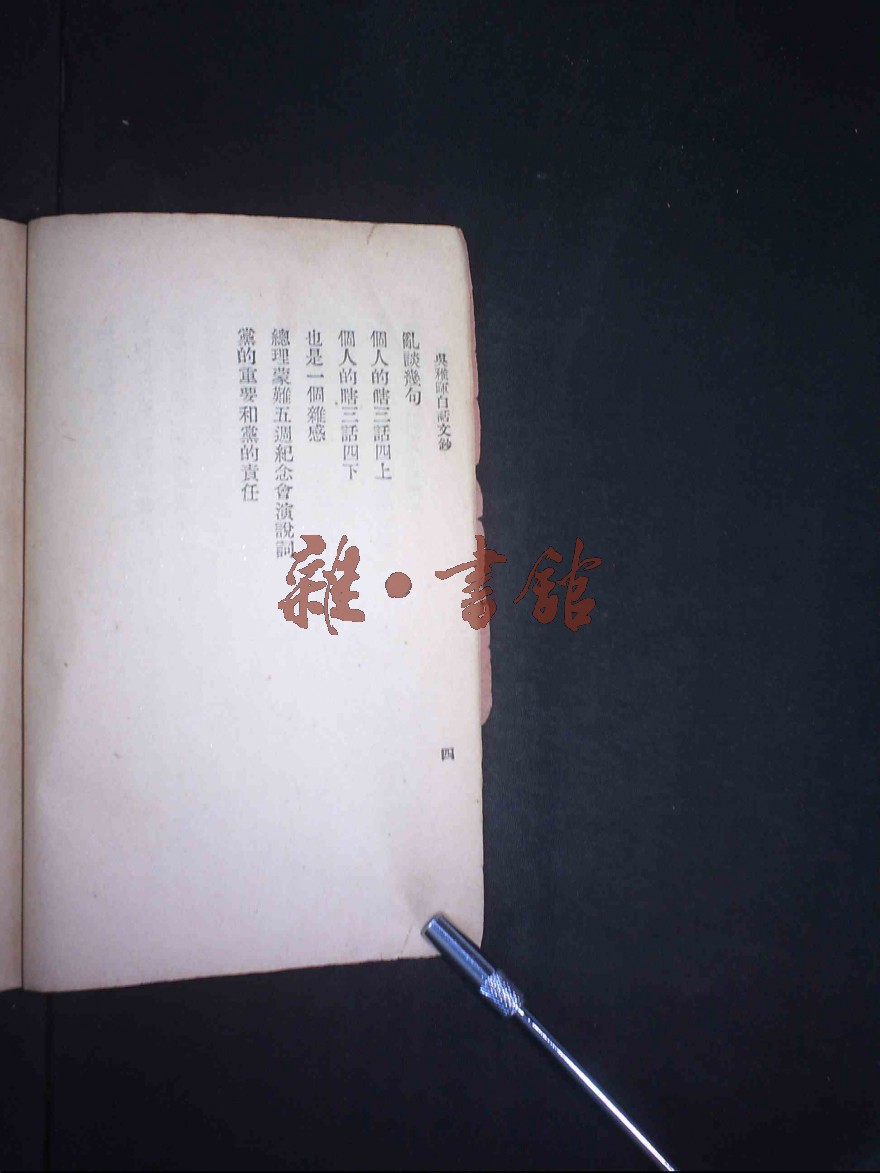 吳稚暉白話文鈔
亂談幾句
個人的瞎三話四上
個人的瞎三話四下
也是一個雜感
總理蒙難五週紀念會演說詞
黨的重要和黨的責任
四
雜·書館